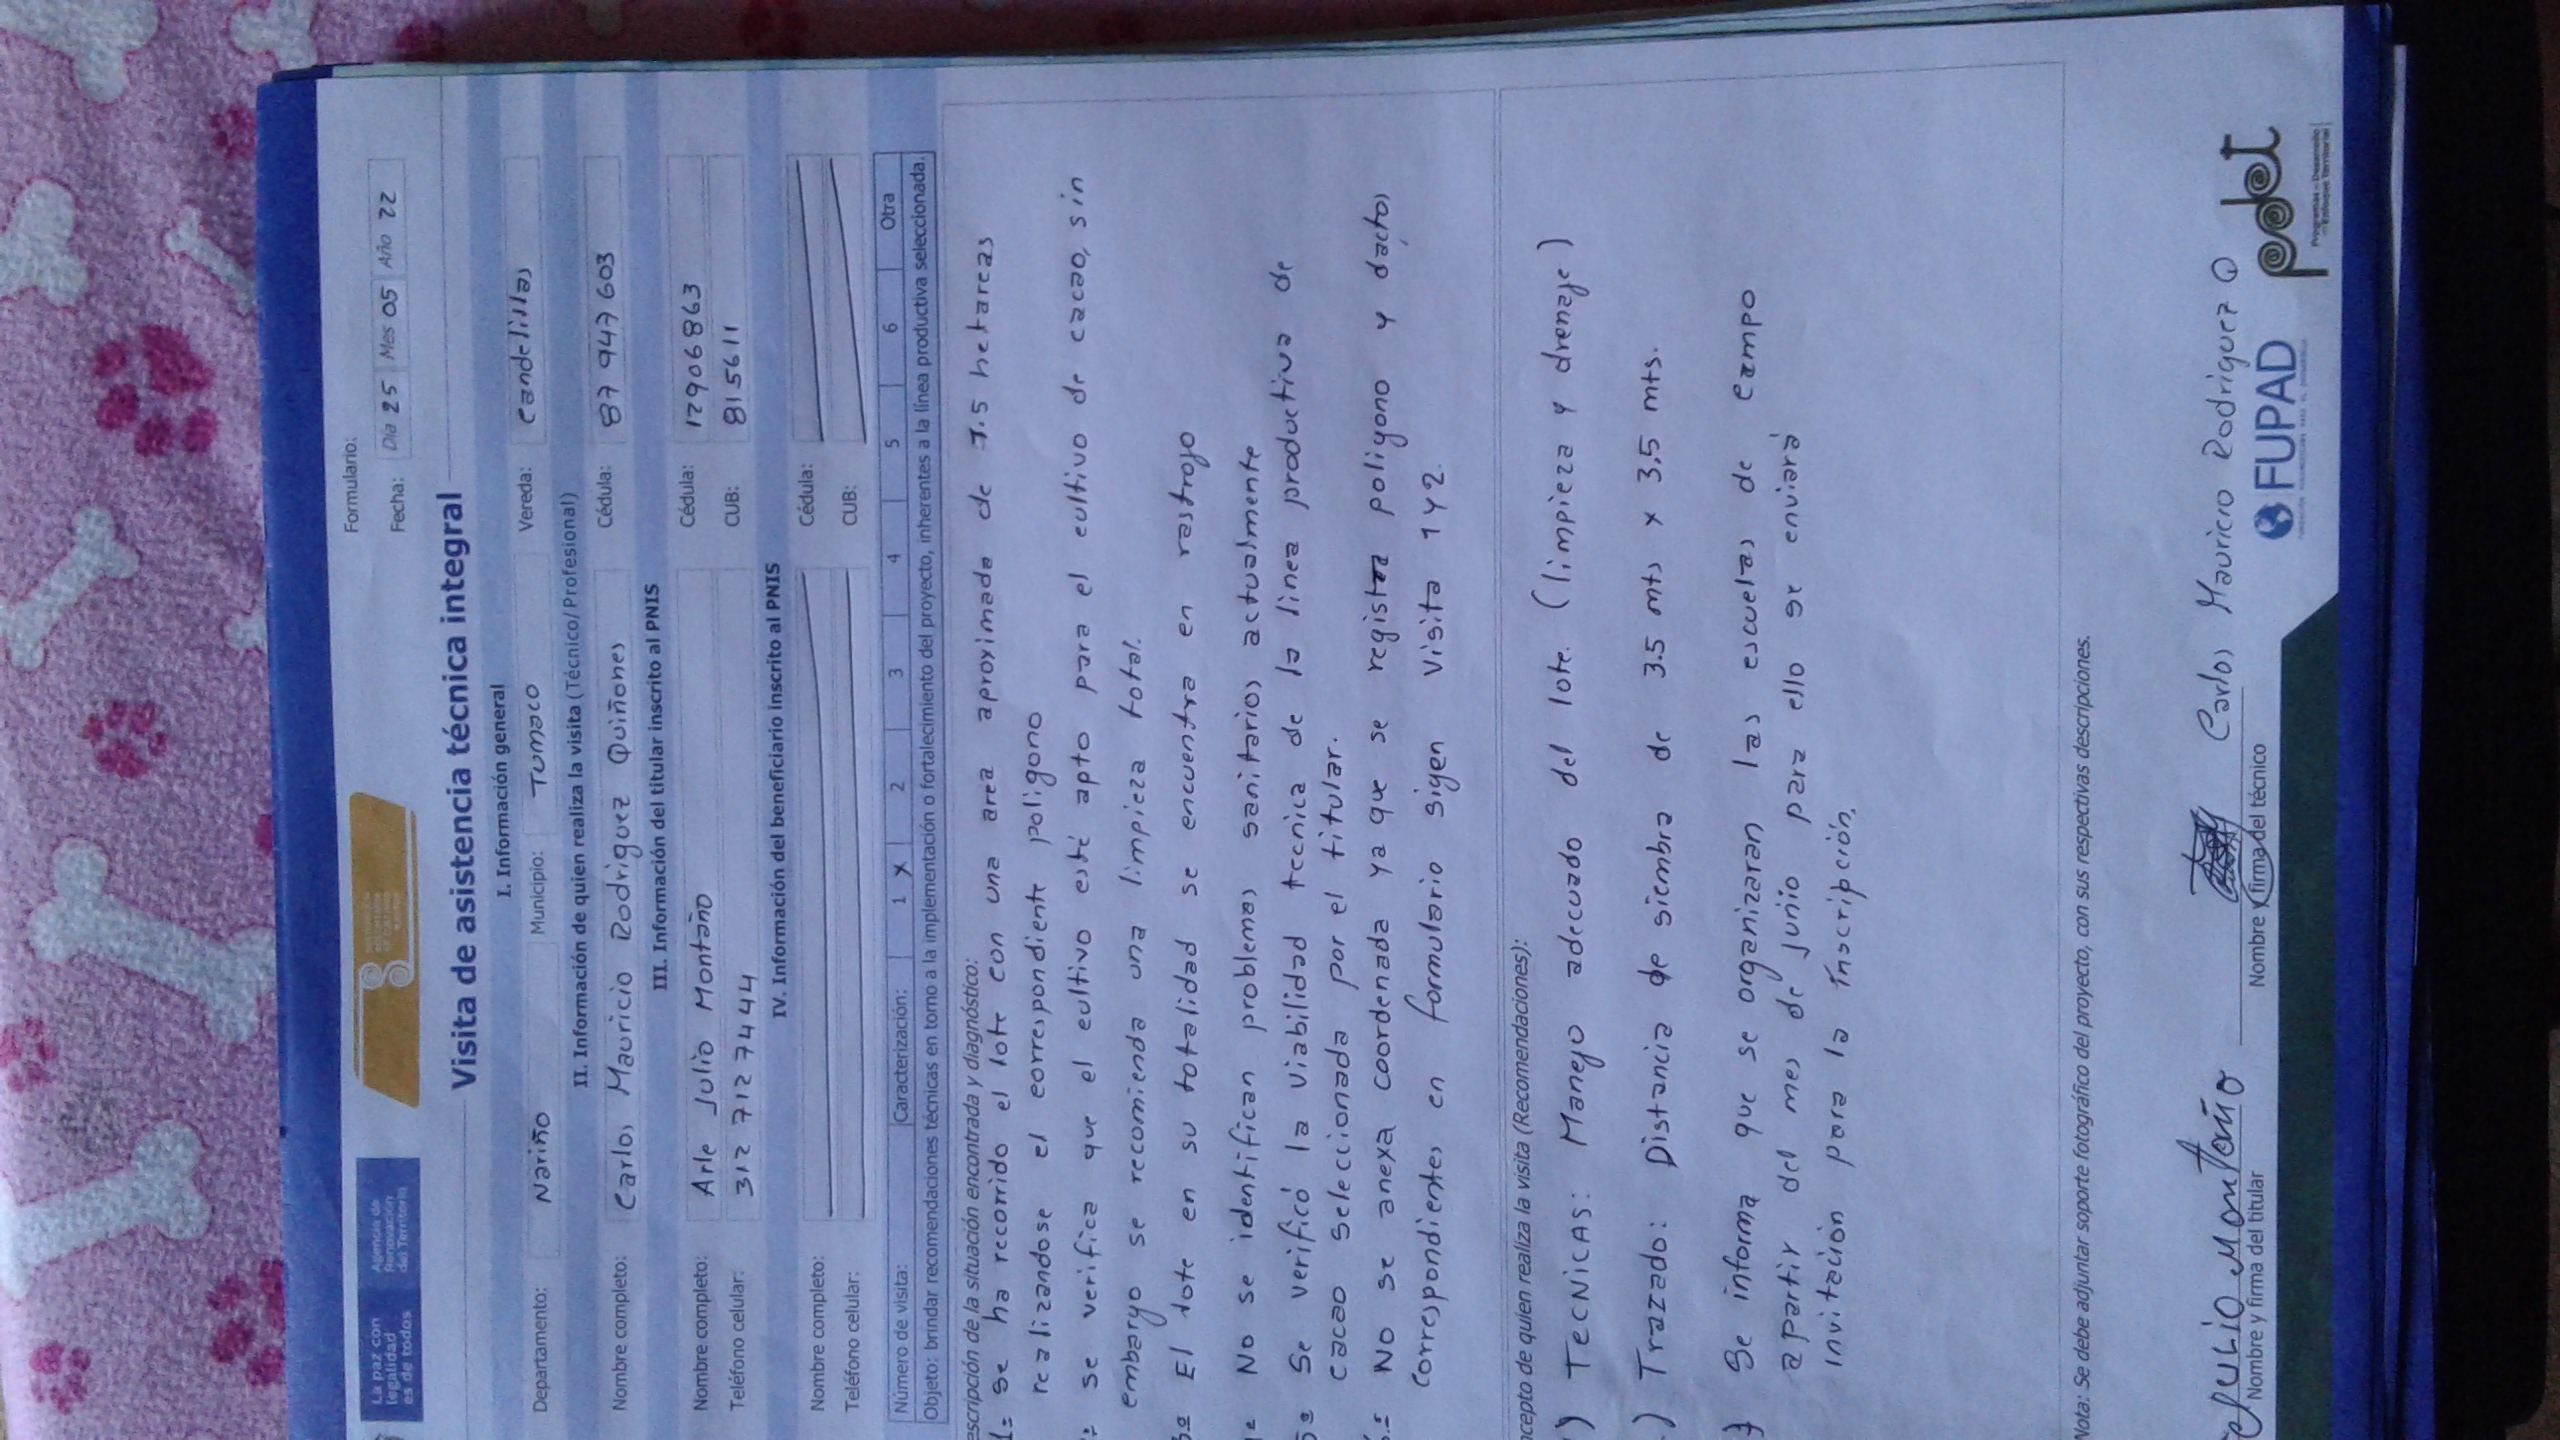 La paz con
legalidad
es de todos
Agencia de
Renovación
del Territorio
Formulario:
Fecha: Día 25 Mes 05 Año 22
Visita de asistencia técnica integral
I. Información general
Departamento: Nariño Municipio: Tumaco Vereda: Candelillas
II. Información de quien realiza la visita (Técnico/Profesional)
Nombre completo: Carlos Mauricio Rodriguez Quiñones Cédula: 87 947 603
III. Información del titular inscrito al PNIS
Nombre completo: Arle Julio Montaño Cédula: 12906863
Teléfono celular: 312 712 7444 CUB: 815611
IV. Información del beneficiario inscrito al PNIS
Nombre completo: Cédula:
Teléfono celular: CUB:
Número de visita: Caracterización: 1 X 2 3 4 5 6 Otra
Objeto: brindar recomendaciones técnicas en torno a la implementación o fortalecimiento del proyecto, inherentes a la línea productiva seleccionada.
escripción de la situación encontrada y diagnóstico:
1= se ha recorrido el lote con una area aproximada de 1.5 hetareas
realizandose el correspondiente poligono
se verifica que el cultivo esté apto para el cultivo de cacao, sin
embargo se recomienda una limpieza total.
El lote en su totalidad se encuentra en rastrojo
No se identifican problemas sanitarios actualmente
Se verificó la viabilidad tecnica de la linea productiva de
cacao seleccionada por el titular.
No se anexa coordenada ya que se registra poligono y dactos
correspondientes en formulario sigen visita 1 y 2.
ncepto de quien realiza la visita (Recomendaciones):
) TECNICAS: Manejo adecuado del lote. (limpieza y drenaje)
) Trazado: Distancia de siembra de 3.5 mts x 3,5 mts.
) Se informa que se organizaran las escuelas de campo
apartir del mes de junio para ello se enviará
invitacion para la inscripción.
Nota: Se debe adjuntar soporte fotográfico del proyecto, con sus respectivas descripciones.
Julio Montaño
Nombre y firma del titular
Carlos Mauricio Rodriguez Q
Nombre y firma del técnico
FUPAD
pdet
Programas de Desarrollo
con Enfoque Territorial